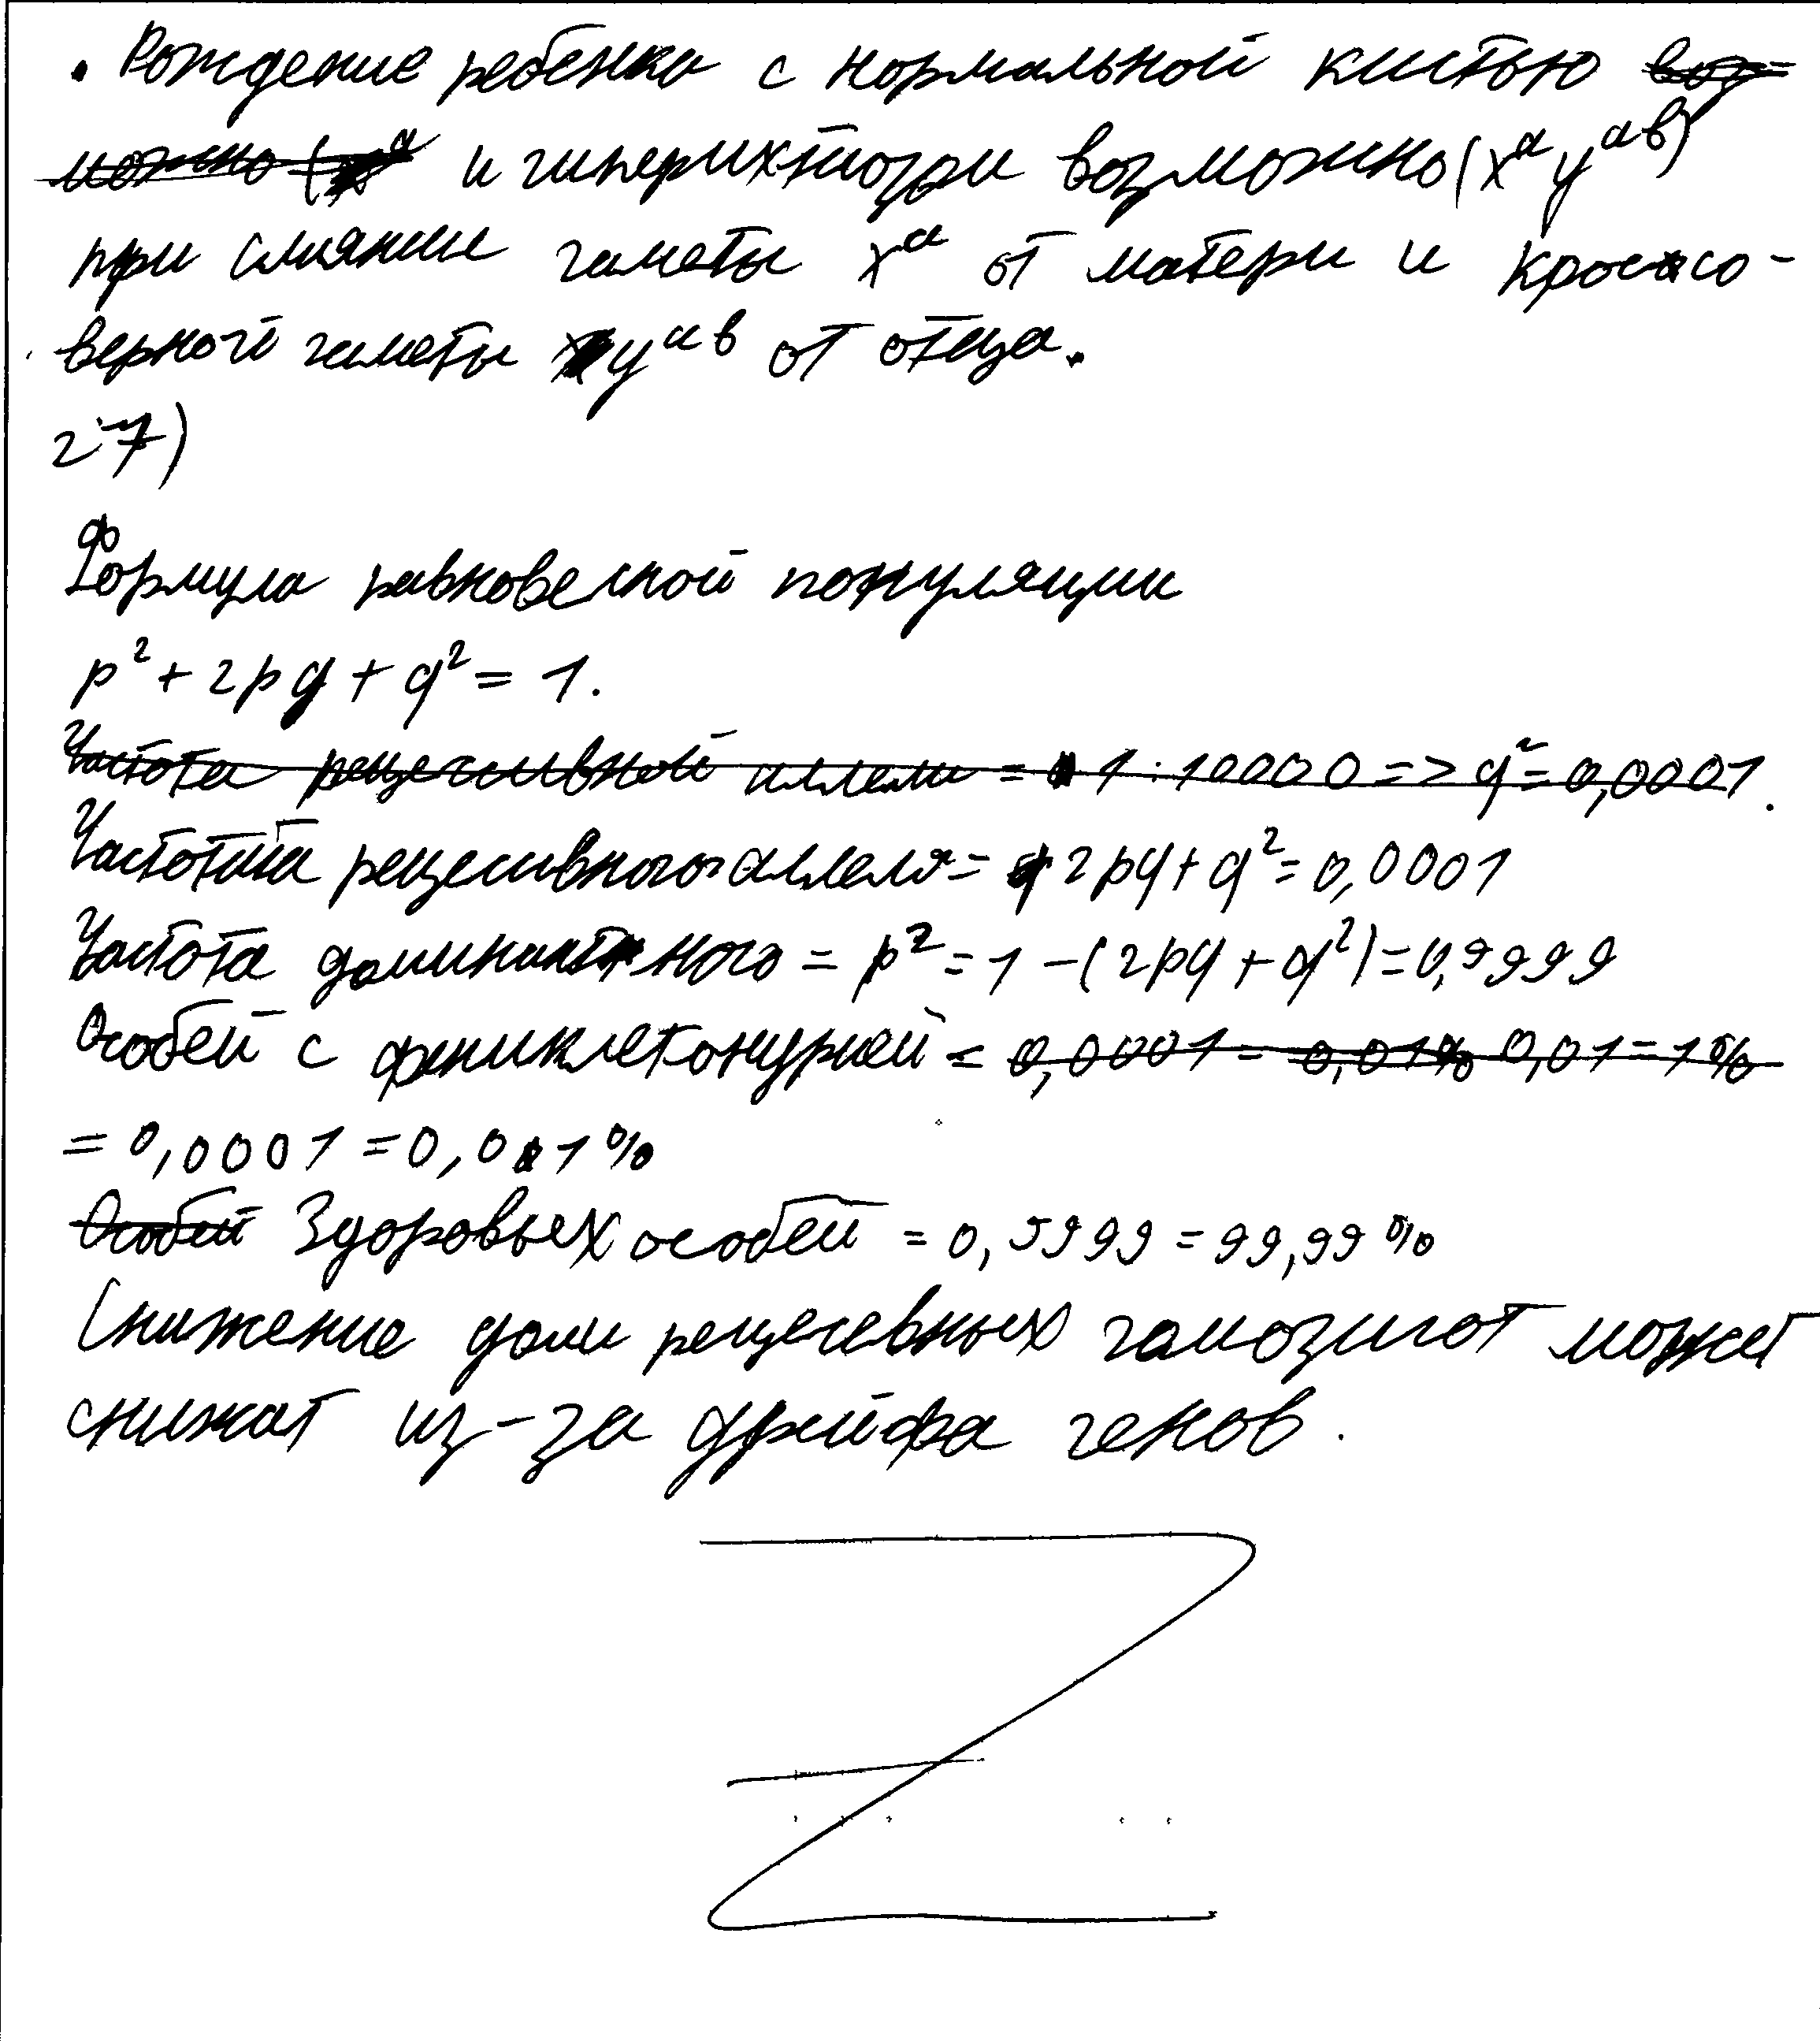 . Рождение ребенка с нормальной кистью воз=
можно (x^a и гиперихтиози возможно (x^a y^ab)
при слиянии гаметы x^a от матери и кроссо-
верной гаметы y^ab от отца.
27)
Формула равновесной популяции
p² + 2pq + q² = 1.
Частота рецессивной аллели = 1:10000 => q² = 0,0001.
Частота рецессивного аллеля = 2pq + q² = 0,0001
Частота доминантного = p² = 1 - (2pq + q²) = 0,9999
Особей с фенилкетонурией = 0,0001 = 0,01% 0,01 = 1%
= 0,0001 = 0,01%
Особей Здоровых особей = 0,9999 = 99,99%
Снижение доли рецесевных гамозигот может
снижат из-за дрейфа генов.